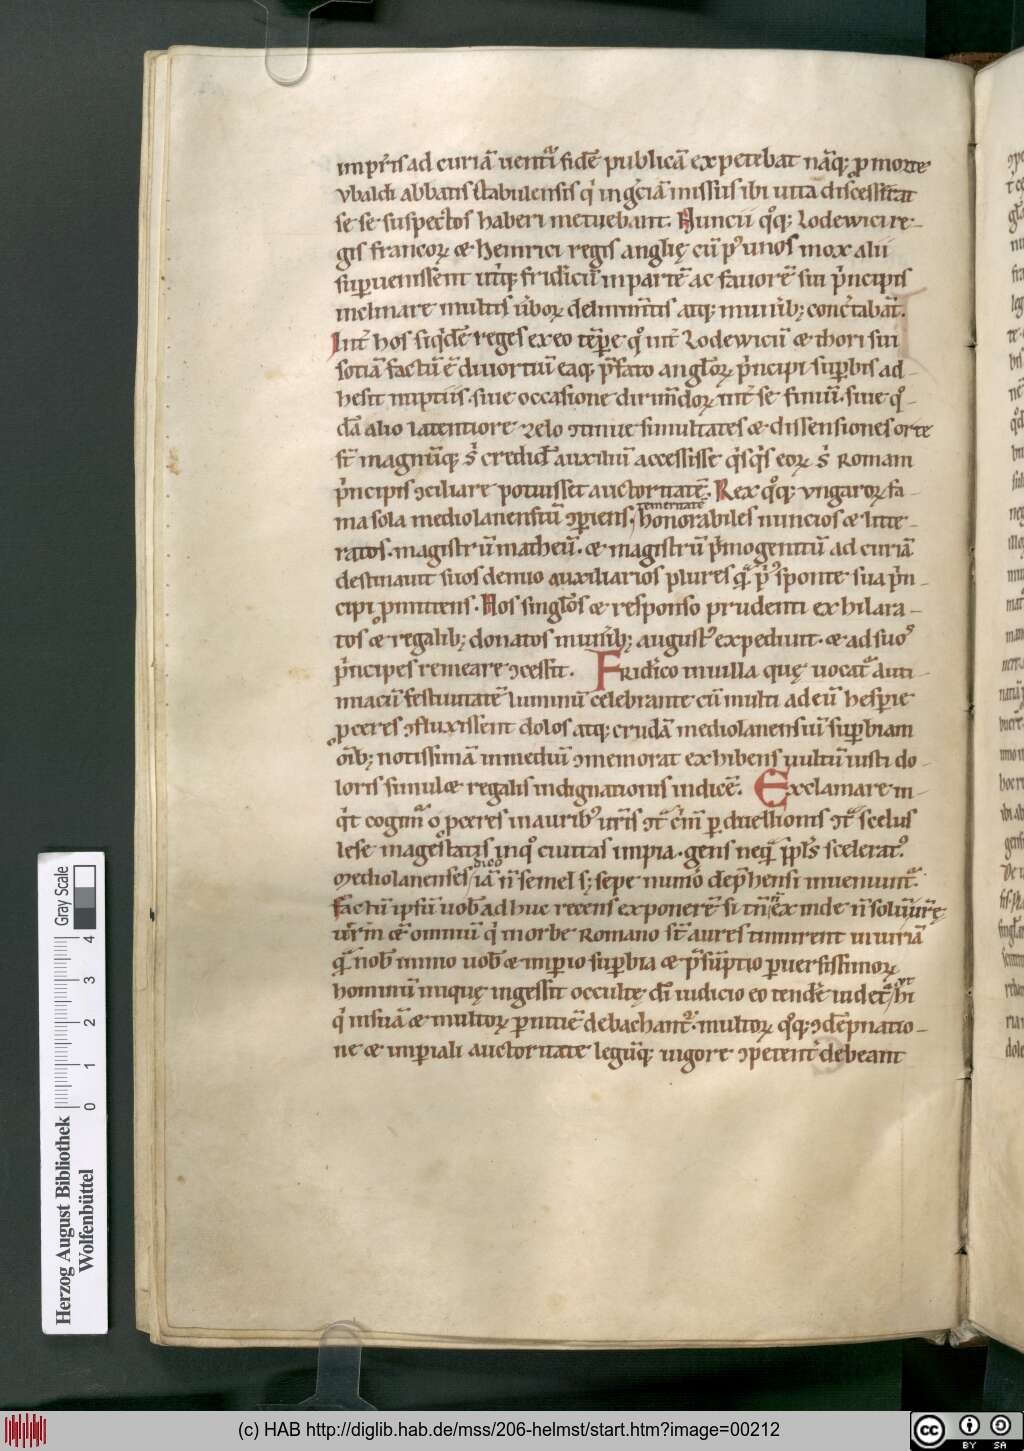 imꝑr̄is ad curiā uentur᷑ fidē publicā expetebat nāq; ꝓ morte
vbaldi abbatis stabulensis q' in grēciā missus ibi uita discesserat
se se suspectos haberi metuebant. Nuncii qͦq; Lodewici re-
gis francoꝝ & heinrici regis anglię cū p᷒ unos mox alii
suꝑuenissent utq; fridicū in partē ac fauorē sui p'ncipis
inclinare multis uerboꝝ delinimtis atq; munib; conc'tabāt.
Int' hos siq'dē reges ex eo tēꝑe qͦ int' Lodewicū & thori sui
sotiā factū ē diuortiū eaq; p̄fato angloꝝ p'ncipi suꝑbis ad-
hesit nuptiis. siue occasione dirimēdoꝝ int' se finiū. siue qͦ-
dā alio latentiore zelo ↄtinue simultates & dissensiones orte
st̄ magnūq; s' credid' auxiliū accessisse q'sq's eoꝝ s' Romani
p'ncipis ↄciliare potuisset auctoritatē. Rex qͦq; vngaroꝝ fa-
ma sola mediolanensiū ↄꝑiens. temeritatē honorabiles nuncios & litte-
ratos. magistrū matheū. & magistrū p'mogenitū ad curiā
destinauit suos denuo auxiliarios plures q̄ p'᷒ sponte sua p'n-
cipi ꝓmittens. Nos singlos & responso prudenti exhilara-
tos & regalib; donatos munib; august᷒ expediuit. & ad suo᷒
p'ncipes remeare ↄcessit. Fridico in uilla quę uocat᷑ anti-
macū festiuitatē luminū celebrante cū multi ad eū hesꝑie
ꝓceres ↄfluxissent dolos atq; crudā mediolanensiū suꝑbiam
oīb; notissimā in mediū ↄmemorat exhibens uultū uisti do-
loris simul & regalis indignationis indicē. Exclamare in-
q't cogim᷑ o ꝓceres in aurib᷒ uīris ↄt᷑ c'm ꝑduellionis ↄt᷑ scelus
lese magestatis inqͦ ciuitas impia. gens neq̄ ppl's scelerat᷒.
Mediolanenses dico iā n̄ semel s; sepe nimio dep̄hensi inueniunt᷑.
Factū ipsū uob' adhuc recens exponerē si tm̄ ex inde n̄ soluū urē
urm̄ cē omniū q' in orbe Romano st̄ aures tinnirent iniuriā
q̄ nob' immo uob' & imꝑio suꝑbia & p̄sūptio ꝑuersissimoꝝ
hominū inique ingessit occulte dī iudicio eo tendere uidet᷑ ut hi
q' in suā & multoꝝ ꝑnitiē debachant᷑. multoꝝ qͦq; ↄdēpnatio-
ne & imꝑiali auctoritate legūq; uigore ↄpetent' debeant
Herzog August Bibliothek
Wolfenbüttel
Gray Scale
0 1 2 3 4
(c) HAB http://diglib.hab.de/mss/206-helmst/start.htm?image=00212
cc BY SA